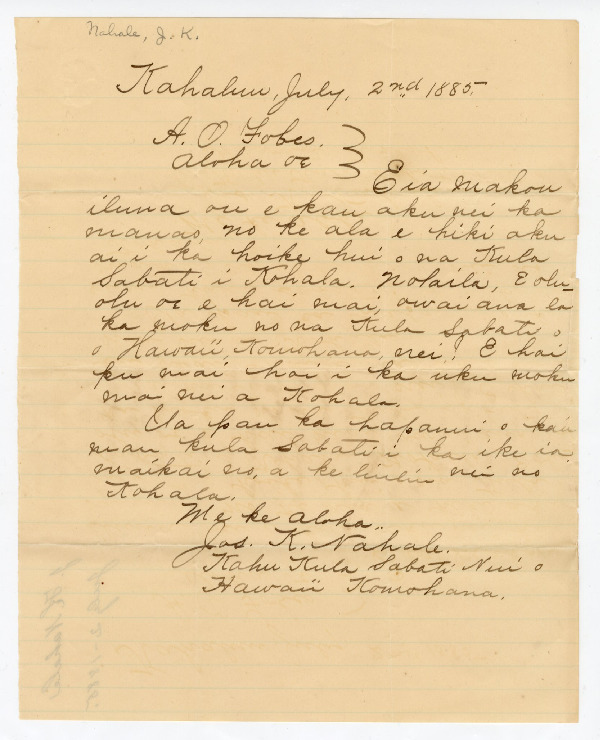 Nahale, J. K.
Kahaluu, July, 2nd 1885.
A. O. Fobes.
Aloha oe
Eia makou
iluna ou e kau aku nei ka
manao, no ke ala e hiki aku
ai i ka hoike hui o na Kula
Sabati i Kohala. Nolaila, E olu-
olu oe e hai mai, owai ana la
ka moku no na Kula Sabati o
o Hawaii Komohana, nei,. E hai
pu mai hoi i ka uku moku
mai nei a Kohala.
Ua pau ka hapanui o kau
mau kula Sabati i ka ike ia
maikai no, a ke liuliu nei no
Kohala.
Me ke aloha..
Jos. K. Nahale.
Kahu Kula Sabati Nui o
Hawaii Komohana.